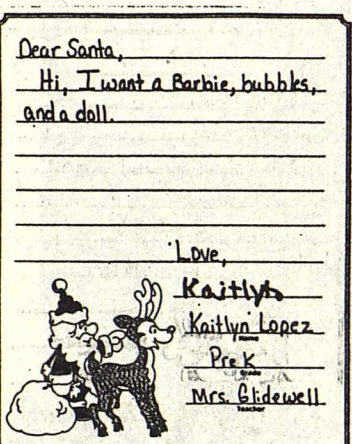 Dear Santa,
Hi, I want a Barbie, bubbles,
and a doll.
Love,
Kaitlyn
Kaitlyn Lopez
Name
Pre K
Grade
Mrs. Glidewell
Teacher